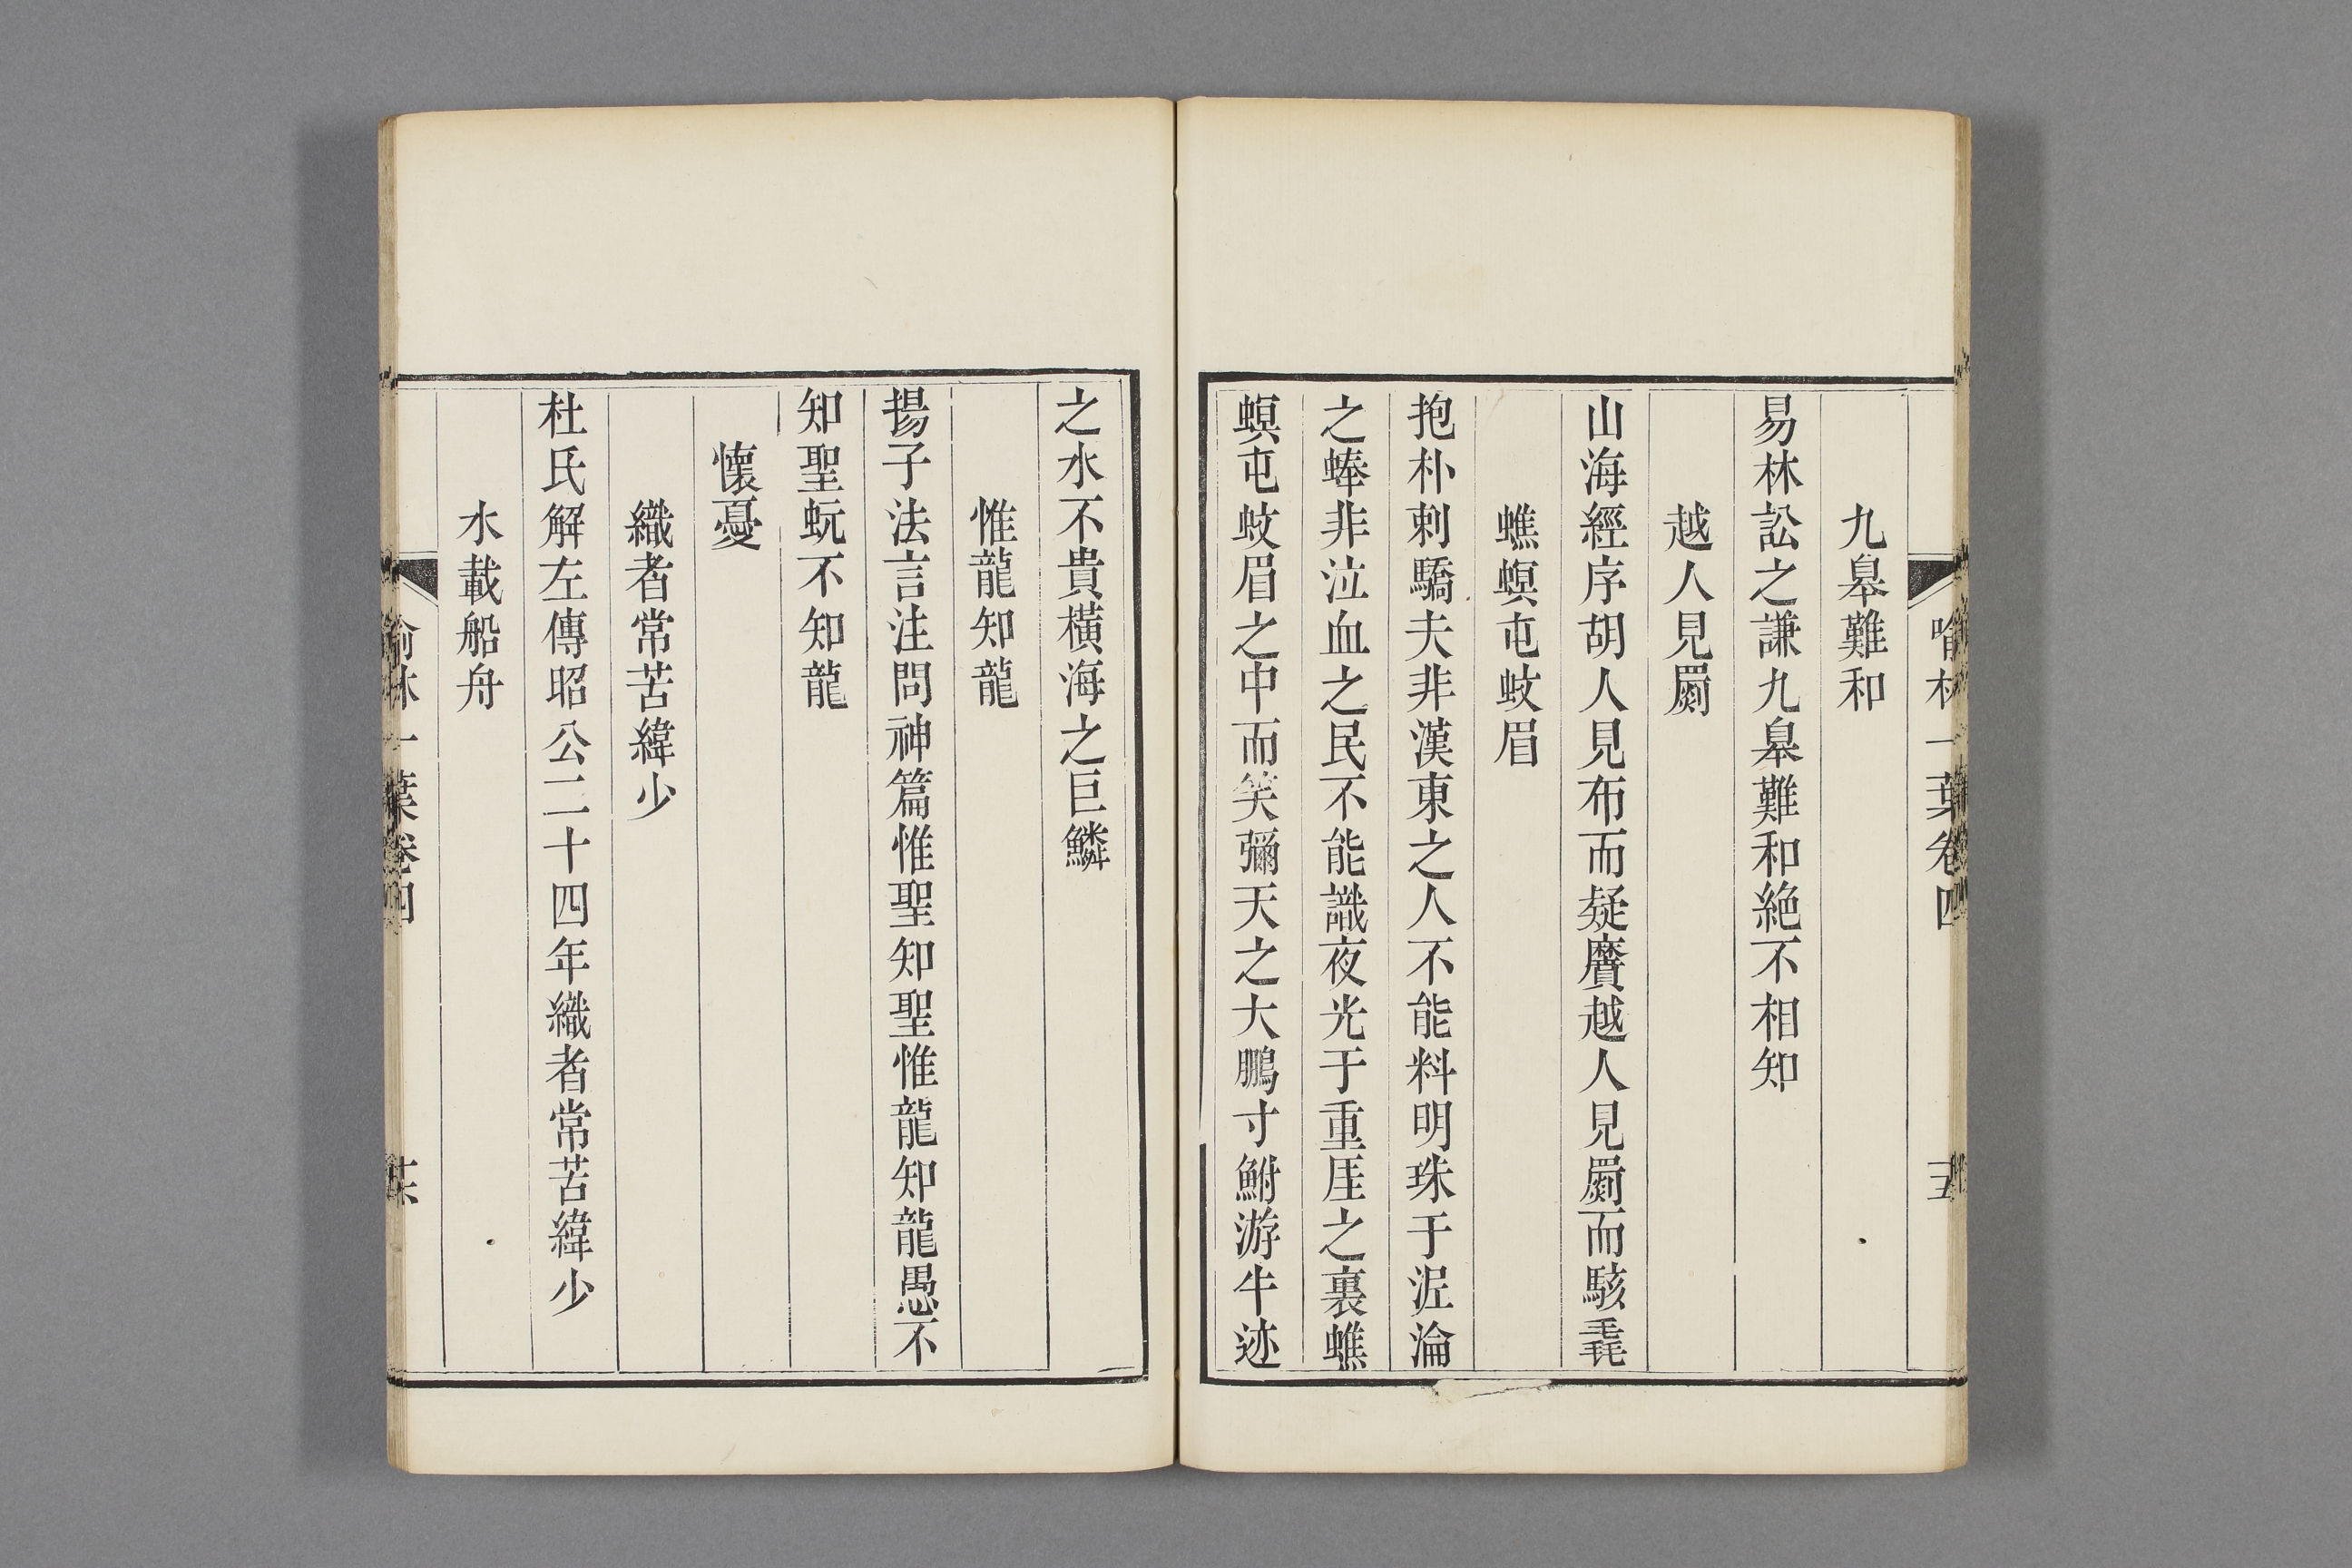 喻林一葉卷四
九臯難和
易林訟之謙九臯難和絶不相知
越人見罽
山海經序胡人見布而疑黂越人見罽而駭毳
蟭螟屯蚊眉
抱朴刺驕夫非漢東之人不能料明珠于泥淪
之蜯非泣血之民不能識夜光于重厓之裏蟭
螟屯蚊眉之中而笑彌天之大鵬寸鮒游牛迹
之水不貴橫海之巨鱗
惟龍知龍
揚子法言注問神篇惟聖知聖惟龍知龍愚不
知聖蚖不知龍
懷憂
織者常苦緯少
杜氏解左傳昭公二十四年織者常苦緯少
水載船舟
喻林一葉卷四